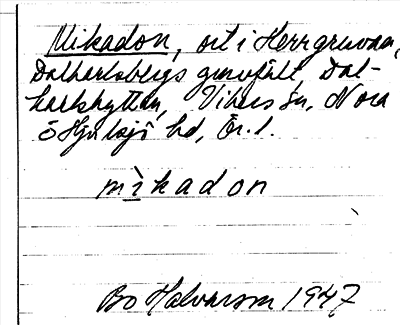 Mikadon, ort i Herrgruvan,
Dalkarlsbergs gruvfält, Dal-
karlshyttan, Vikers sn, Nora
o Hjulsjö hd, Ör. l.
mikadon
Bo Halvarson 1947